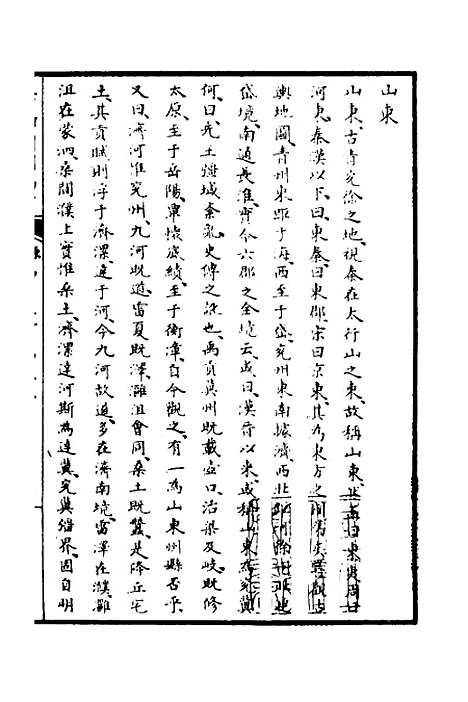 山東
山東古青兗徐之地視秦在太行山之東故稱山東
河夷秦漢以下曰東秦曰東郡宋曰京東其為東方之
輿地圖青州東距于海西至于岱兗州東南據濟西北
岱境南通長淮實今六郡之全境云或曰漢晉以來或稱山東為兗冀
何曰先王疆域紊亂史傳之訛也禹貢冀州既載壺口治梁及岐既修
太原至于岳陽覃懷底績至于衡漳自今觀之有一為山東州縣否乎
又曰濟河惟兗州九河既道雷夏既澤灉沮會同桑土既蠶是降丘宅
土其貢賦則浮于濟漯達于河今九河故道多在濟南境雷澤在濮灉
沮在蒙泗桑間濮上實惟桑土濟漯達河斯為達冀兗冀緇界固自明